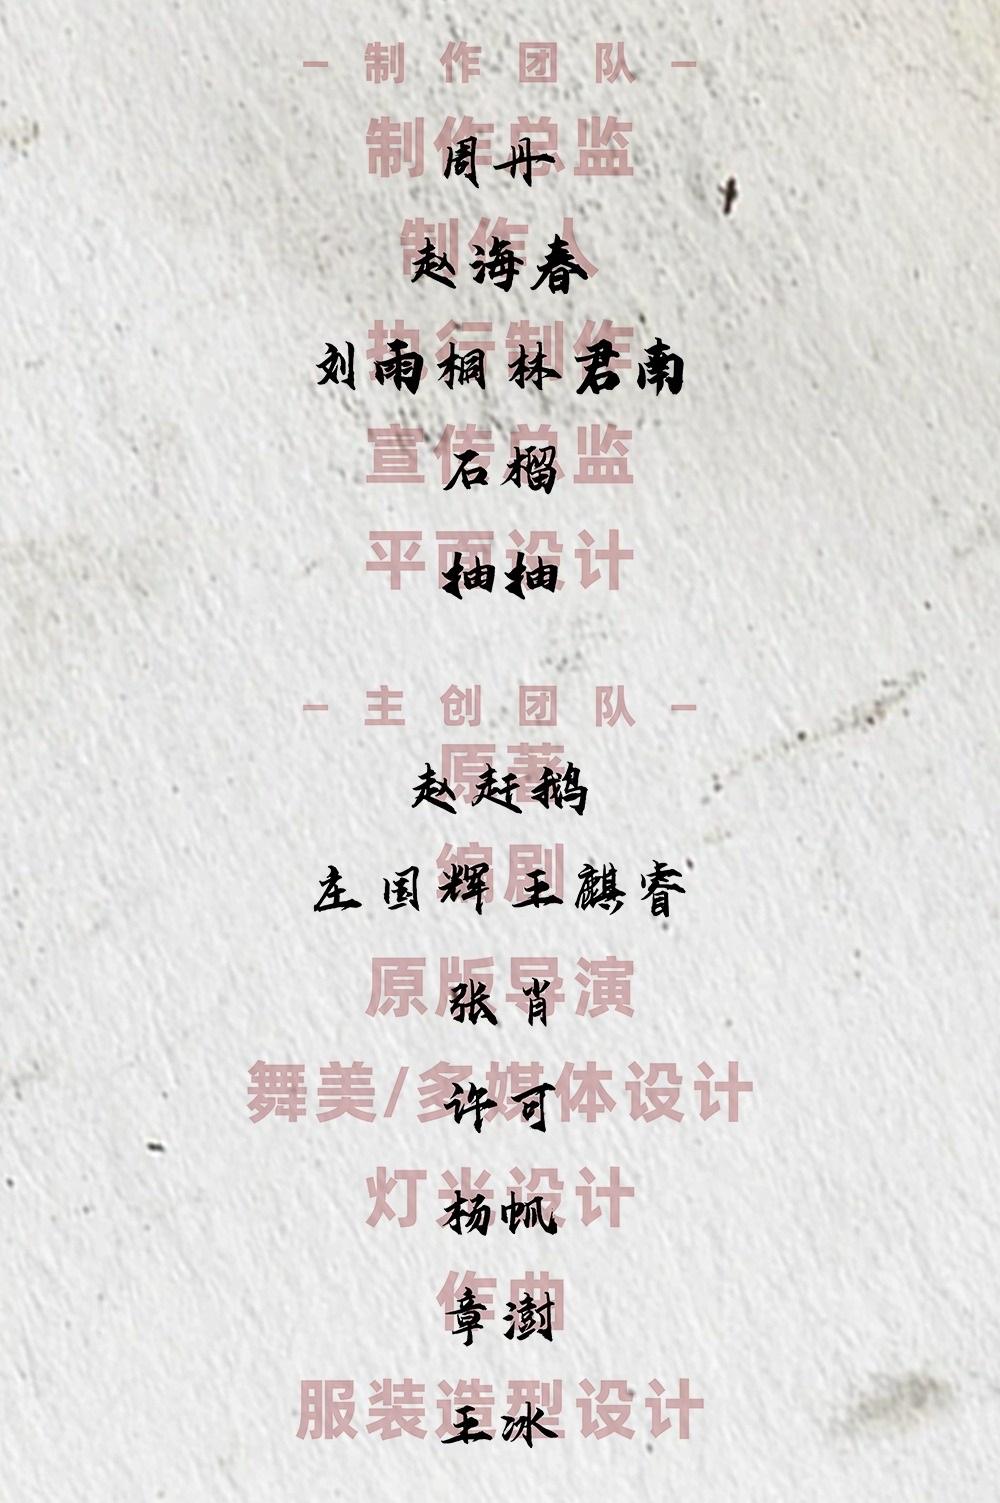 - 制作团队 -
制作总监
周丹
制作人
赵海春
执行制作
刘雨桐 林君南
宣传总监
石榴
平面设计
抽抽
- 主创团队 -
原著
赵赶鹅
编剧
庄国辉 王麒睿
原版导演
张肖
舞美/多媒体设计
许可
灯光设计
杨帆
作曲
章澍
服装造型设计
王冰